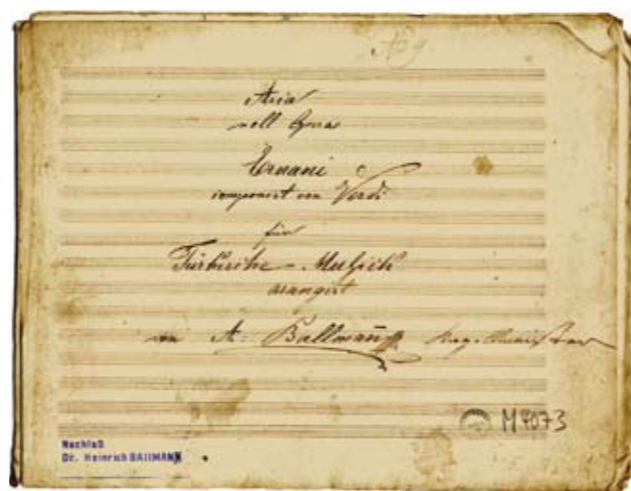 No 9
Aria
nell Opera
Ernani
componirt von Verdi
für
Türkische-Musik
arangirt
von A. Ballmann Kapellmeister
M 4073
Nachlaß
Dr. Heinrich BALLMANN